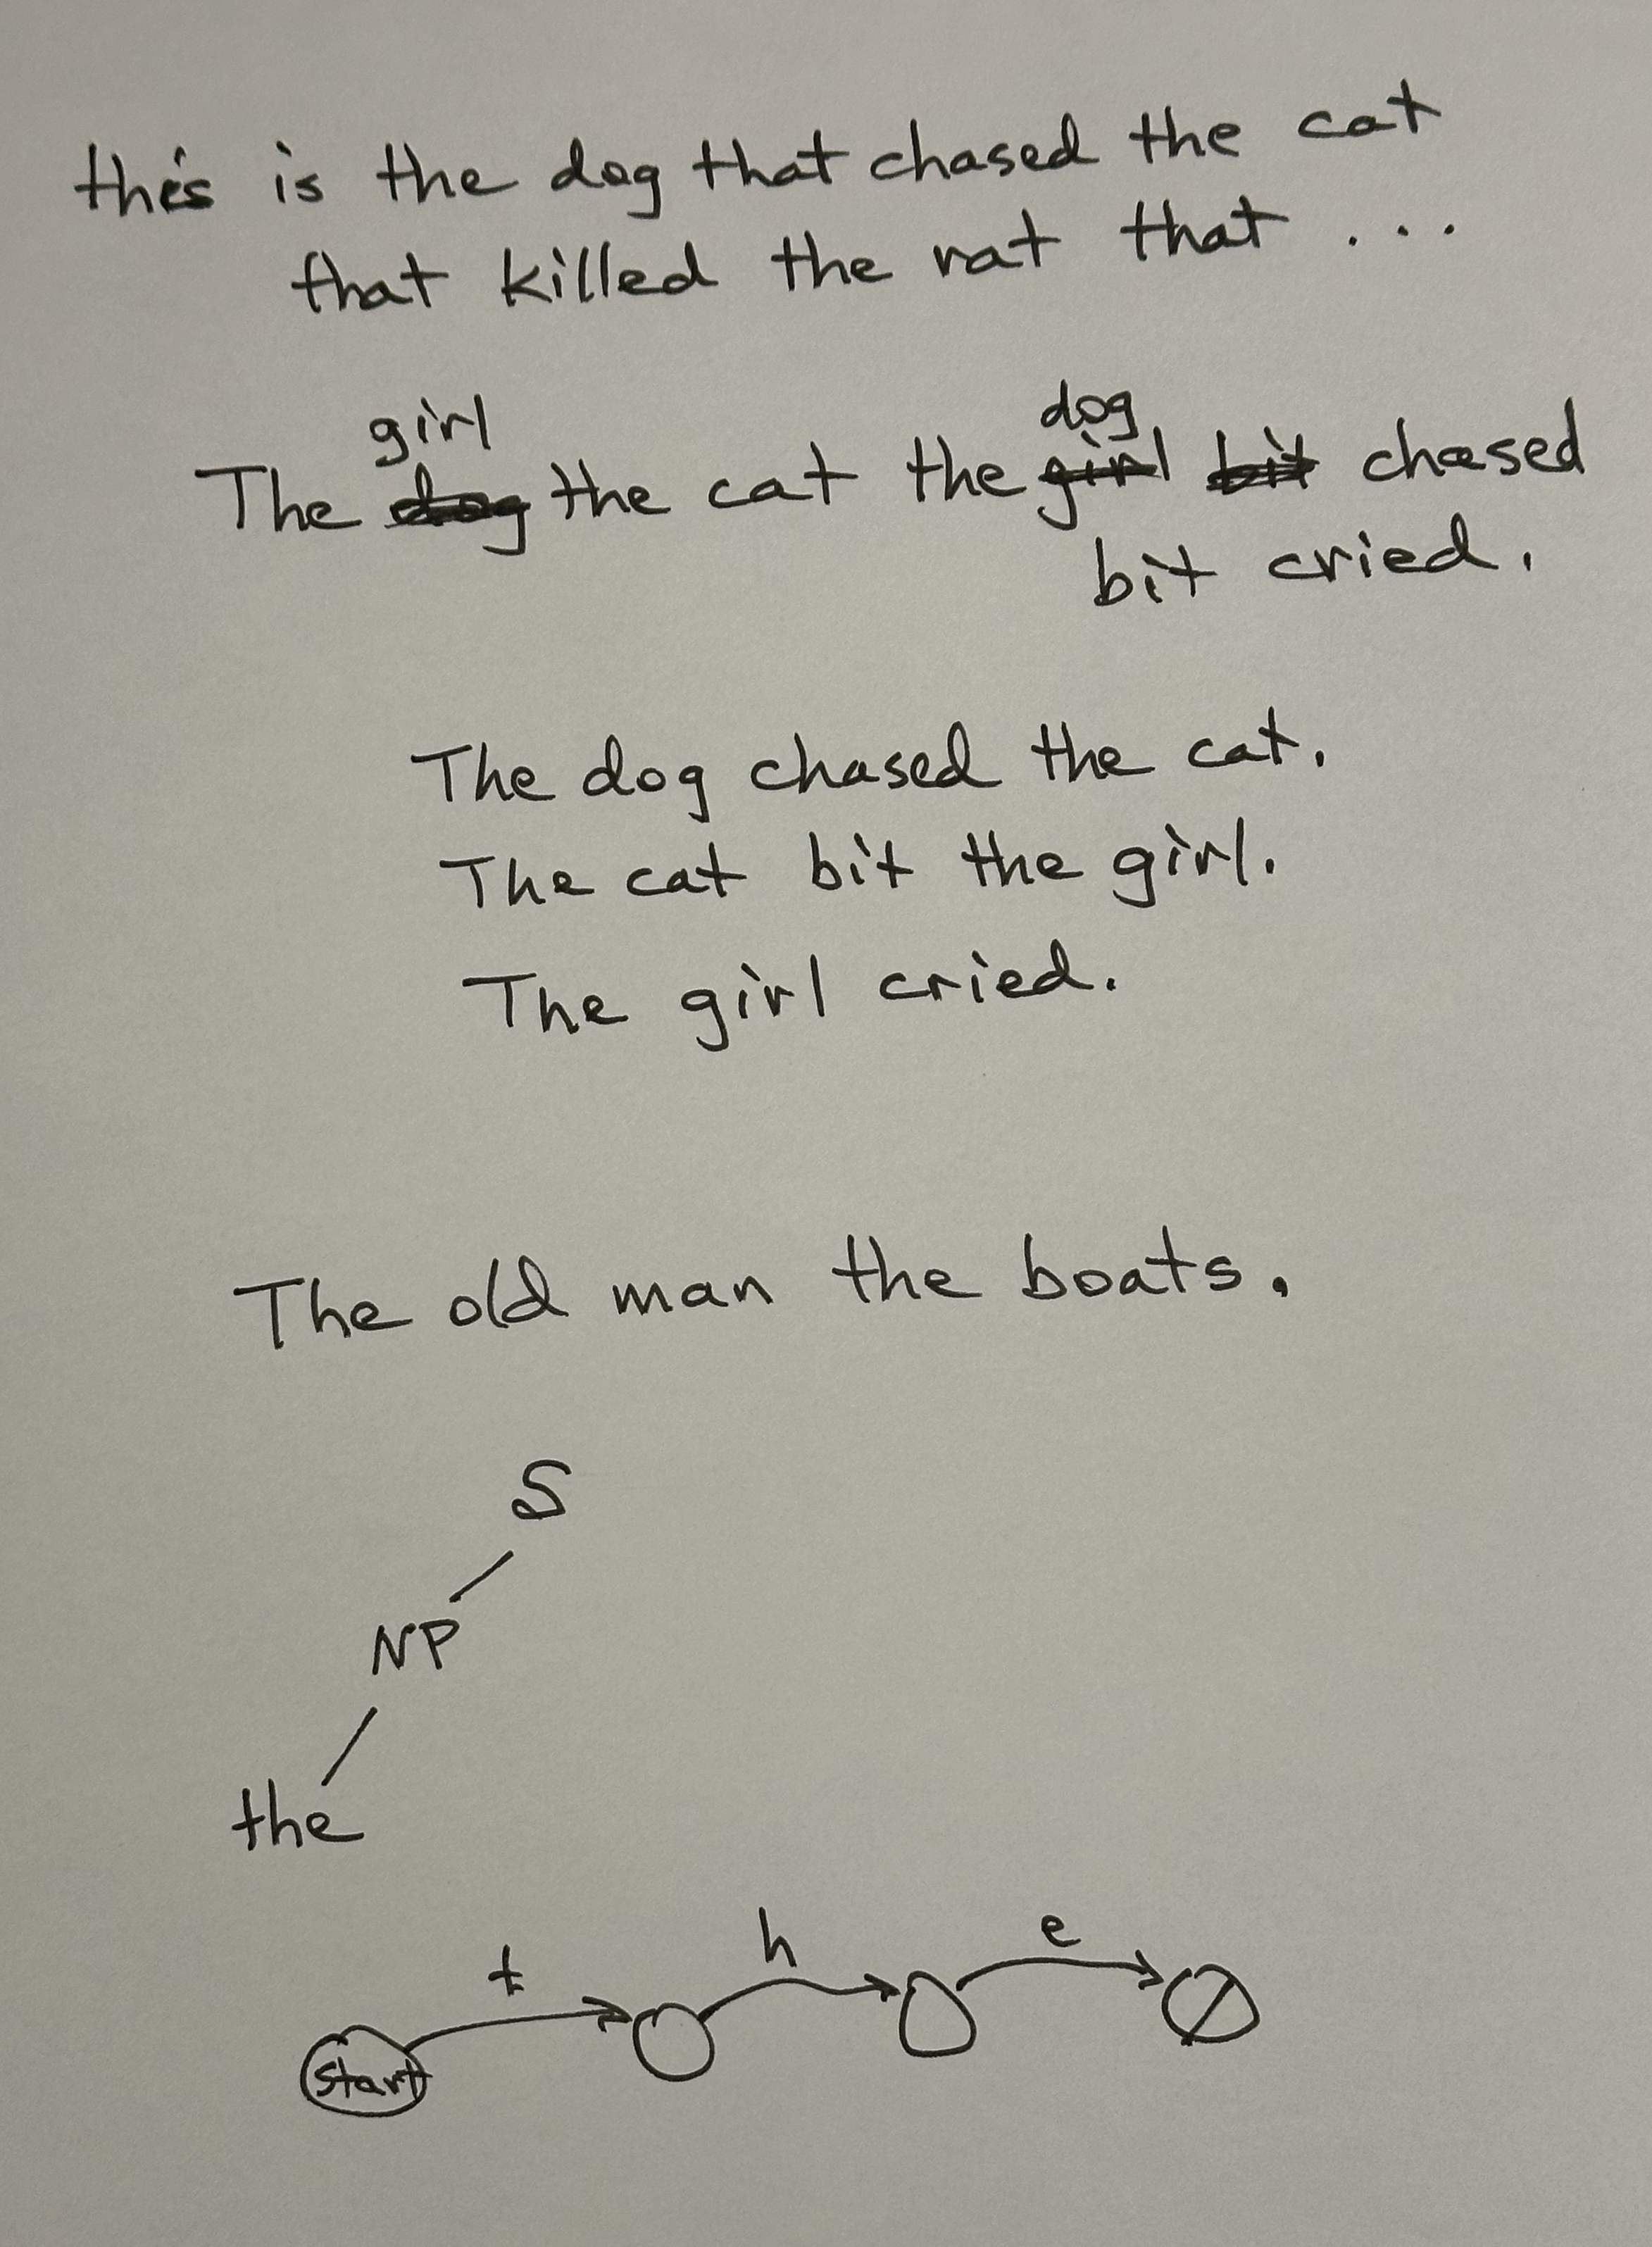 this is the dog that chased the cat
that killed the rat that ...
girl dog
The dog the cat the girl bit chased
bit cried.
The dog chased the cat.
The cat bit the girl.
The girl cried.
The old man the boats.
S
NP
the
t h e
start